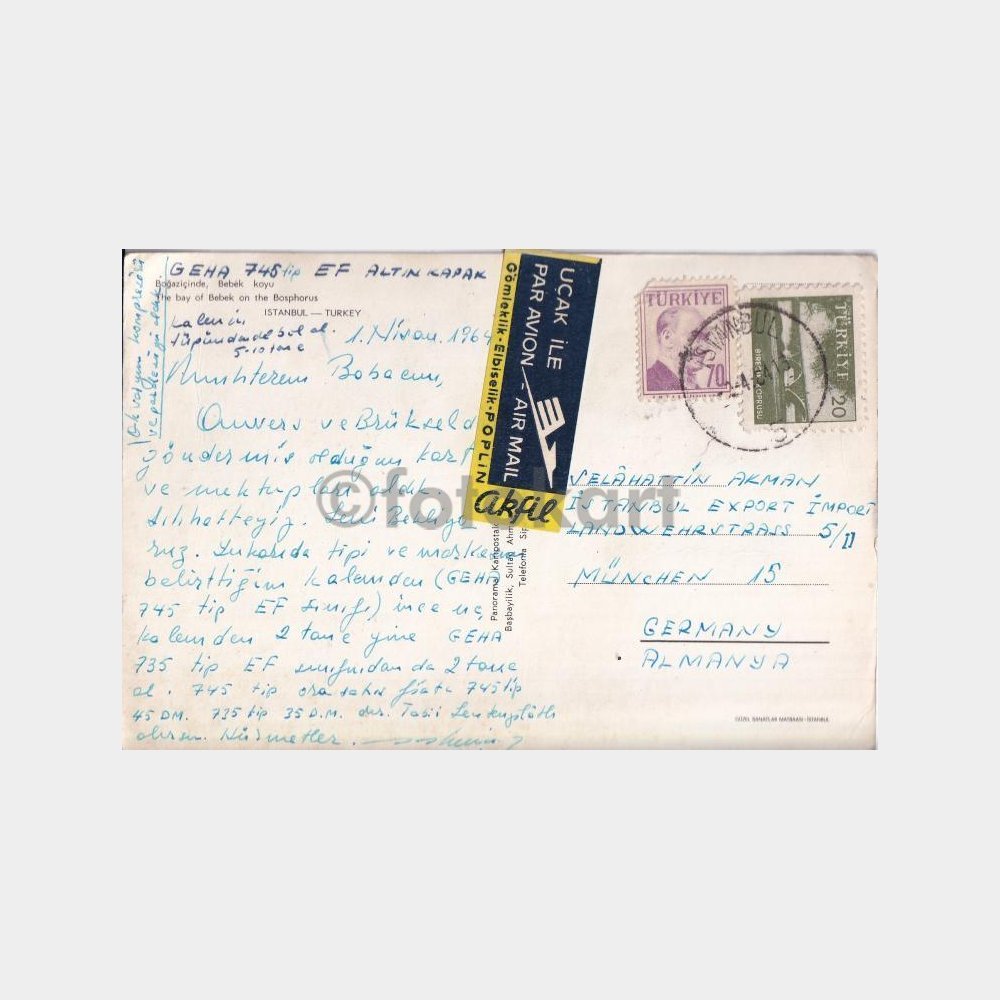 GEHA 745 tip EF ALTIN KAPAK
Boğaziçinde, Bebek koyu
The bay of Bebek on the Bosphorus
ISTANBUL — TURKEY
kalemin
5-10 tane
1. Nisan. 1964
Muhterem Babacım,
Anvers ve Brükselde
göndermiş olduğun kart
ve mektupları aldık
Sıhhatteyiz. Seni Bekliyo
ruz. Yukarıda tipi ve markasını
belirttiğim kalemden (GEHA
745 tip EF sınıfı) ince uç
kalemden 2 tane yine GEHA
735 tip EF sınıfından da 2 tane
al. 745 tip
45 DM. 735 tip 35 D.M. dır.
alırsın. Hürmetler.
UÇAK İLE
PAR AVION - AIR MAIL
Gömleklik-Elbiselik-POPLİN
akfil
Panorama Kartpostal
Başbayilik, Sultan Ahm
Telefonla Sip
TÜRKİYE
70
TÜRKİYE
BİRECİK KÖPRÜSÜ
20
İSTANBUL
SELÂHATTİN AKMAN
İSTANBUL EXPORT İMPORT
LANDWEHRSTRASS 5/II
MÜNCHEN 15
GERMANY
ALMANYA
GÜZEL SANATLAR MATBAASI - İSTANBUL
©fotokart